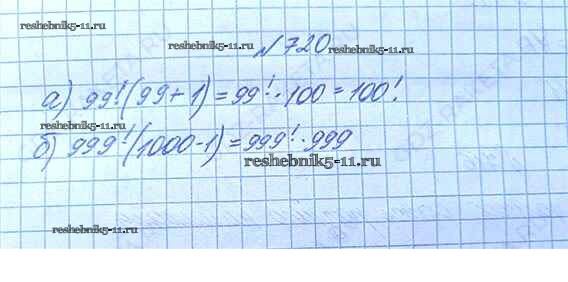 reshebnik5-11.ru
reshebnik5-11.ru №720 reshebnik5-11.ru
а) 99!(99+1)=99!·100=100!
reshebnik5-11.ru
б) 999!(1000-1)=999!·999
reshebnik5-11.ru
reshebnik5-11.ru